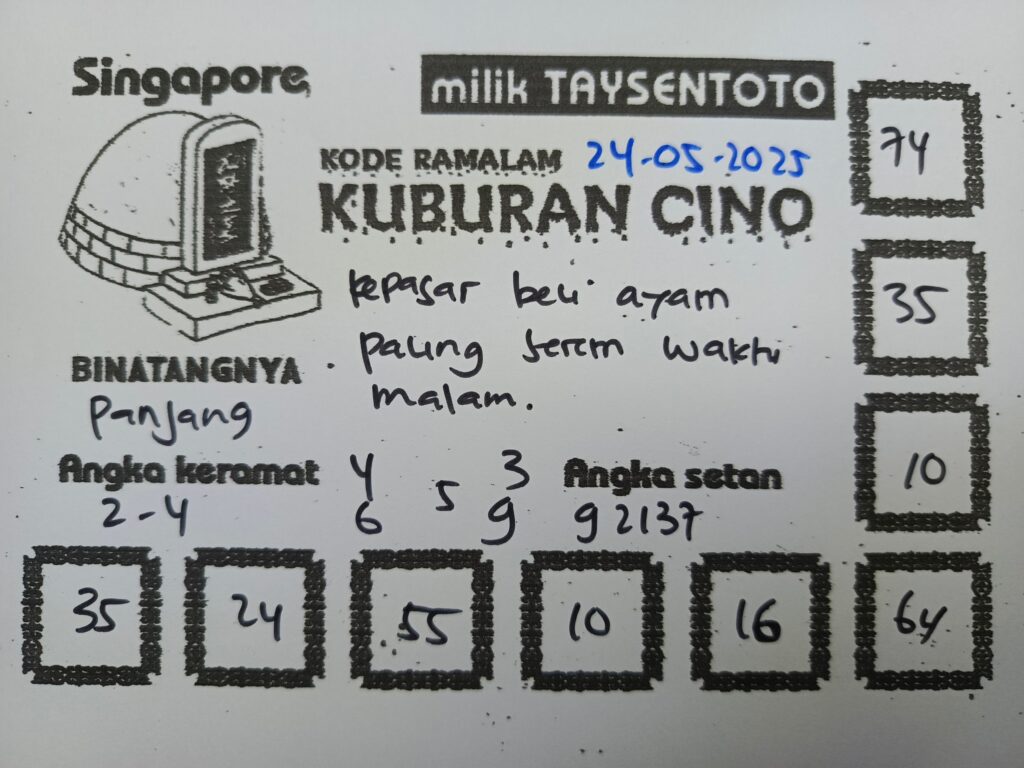 Singapore
milik TAYSENTOTO
KODE RAMALAM 24-05-2025
KUBURAN CINO
kepasar beli ayam
paling serem waktu
malam.
BINATANGNYA
Panjang
Angka keramat
2-4
4 3
5
6 9
Angka setan
92137
74
35
10
35 24 55 10 16 64